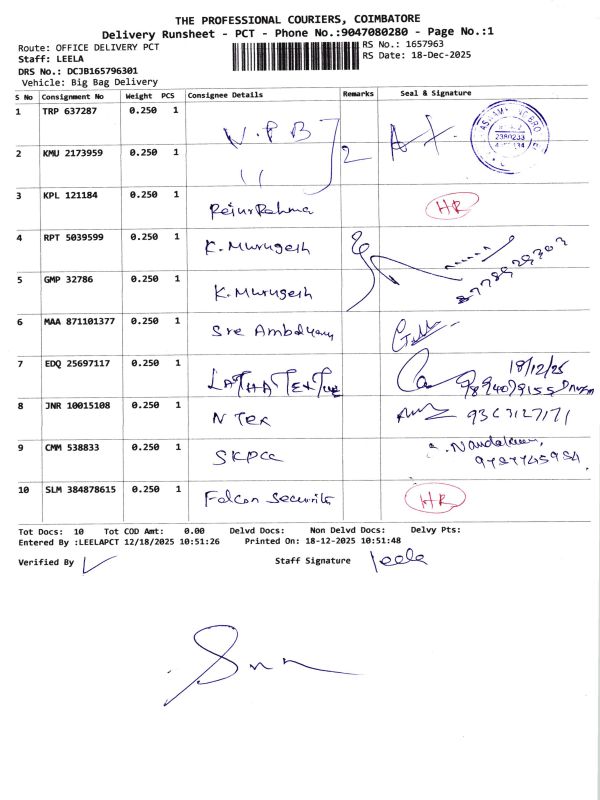 THE PROFESSIONAL COURIERS, COIMBATORE
Delivery Runsheet - PCT - Phone No.:9047080280 - Page No.:1
Route: OFFICE DELIVERY PCT
RS No.: 1657963
Staff: LEELA
RS Date: 18-Dec-2025
DRS No.: DCJB165796301
Vehicle: Big Bag Delivery
S No Consignment No Weight PCS Consignee Details Remarks Seal & Signature
1 TRP 637287 0.250 1 V.P.B
2 KMU 2173959 0.250 1 " 2
2380233
3 KPL 121184 0.250 1 HR
4 RPT 5039599 0.250 1 K. Murugesh
5 GMP 32786 0.250 1 K. Murugesh
6 MAA 871101377 0.250 1 Sre
7 EDQ 25697117 0.250 1 18/12/25
8 JNR 10015108 0.250 1 N Tex
9 CMM 538833 0.250 1
10 SLM 384878615 0.250 1 Falcon HR
Tot Docs: 10 Tot COD Amt: 0.00 Delvd Docs: Non Delvd Docs: Delvy Pts:
Entered By :LEELAPCT 12/18/2025 10:51:26 Printed On: 18-12-2025 10:51:48
Verified By Staff Signature leela